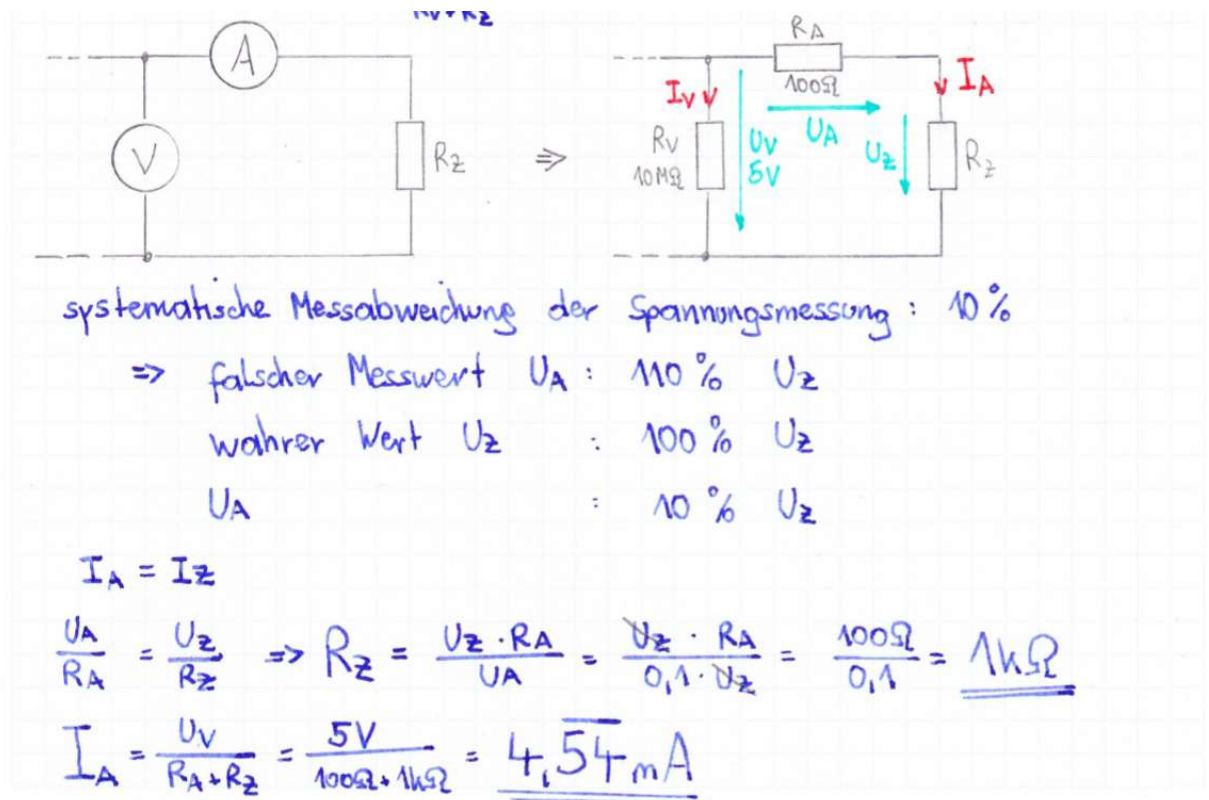 RV+RZ
A
V
RZ
⇒
RA
100Ω
IV
IA
RV
10MΩ
UV
5V
UA
UZ
RZ
systematische Messabweichung der Spannungsmessung : 10 %
=> falscher Messwert UA : 110 % UZ
wahrer Wert UZ : 100 % UZ
UA : 10 % UZ
IA = IZ
UA/RA = UZ/RZ => RZ = UZ · RA/UA = UZ · RA/0,1 · UZ = 100Ω/0,1 = 1kΩ
IA = UV/RA+RZ = 5V/100Ω+1kΩ = 4,5̅4̅ mA